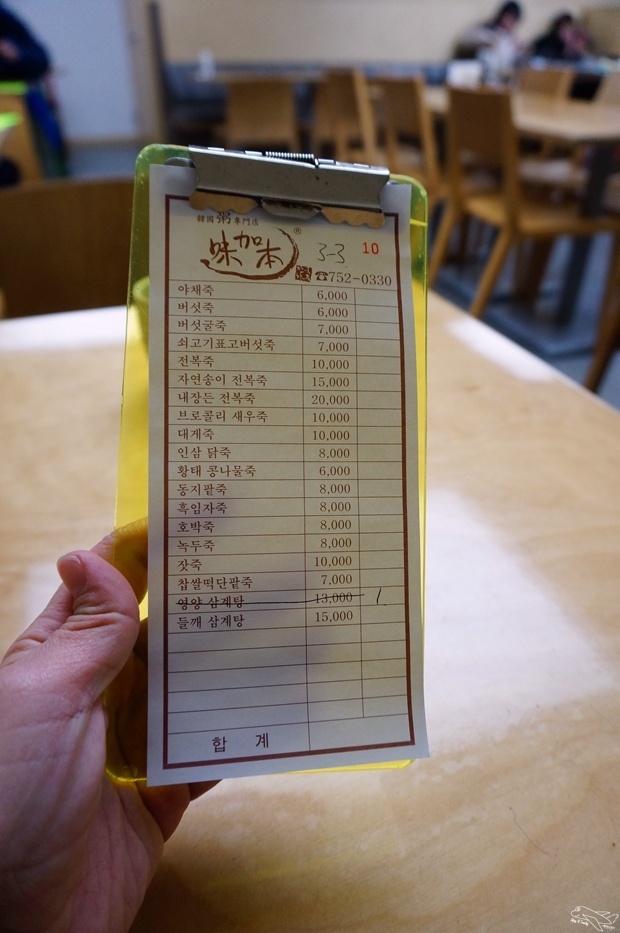 韓國粥專門店
味加本 ®
3-3 10
☎752-0330
야채죽 6,000
버섯죽 6,000
버섯굴죽 7,000
쇠고기표고버섯죽 7,000
전복죽 10,000
자연송이 전복죽 15,000
내장든 전복죽 20,000
브로콜리 새우죽 10,000
대게죽 10,000
인삼 닭죽 8,000
황태 콩나물죽 6,000
동지팥죽 8,000
흑임자죽 8,000
호박죽 8,000
녹두죽 8,000
잣죽 10,000
찹쌀떡단팥죽 7,000
영양 삼계탕 13,000 1
들깨 삼계탕 15,000
합 계